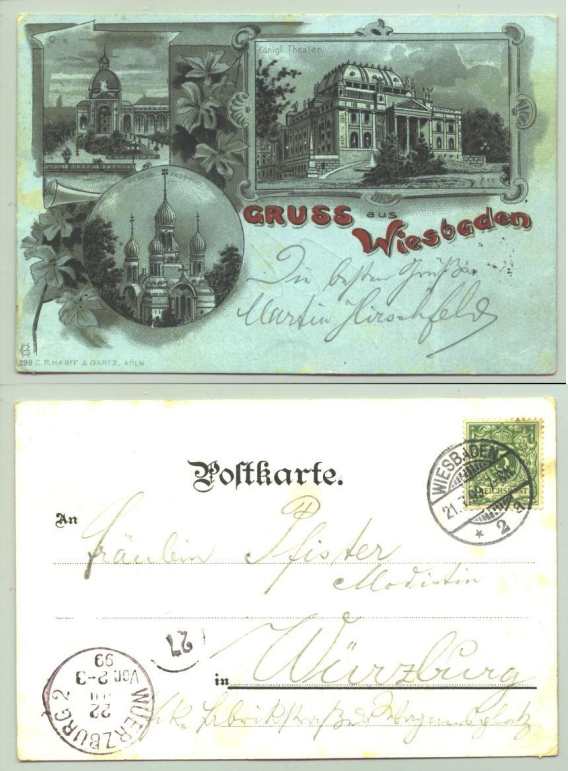 Königl. Theater.
GRUSS aus
Wiesbaden
Die besten Grüße
Martin Hirschfeld
299 C.R.HARFF & GARTZ, KÖLN
Postkarte.
WIESBADEN
21.7.99
* 2
REICHSPOST
An
Fräulein Pfister
Modistin
27
in Würzburg
WUERZBURG 2
22
Vor. 2-3
99